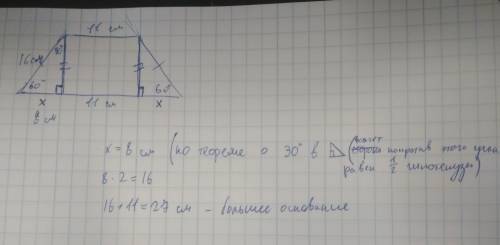 11 см
16 см
30°
60°
60°
x
11 см
x
8 см
x = 8 см (по теореме о 30° в (катет напротив этого угла
равен 1/2 гипотенузы)
8 · 2 = 16
16 + 11 = 27 см – большее основание